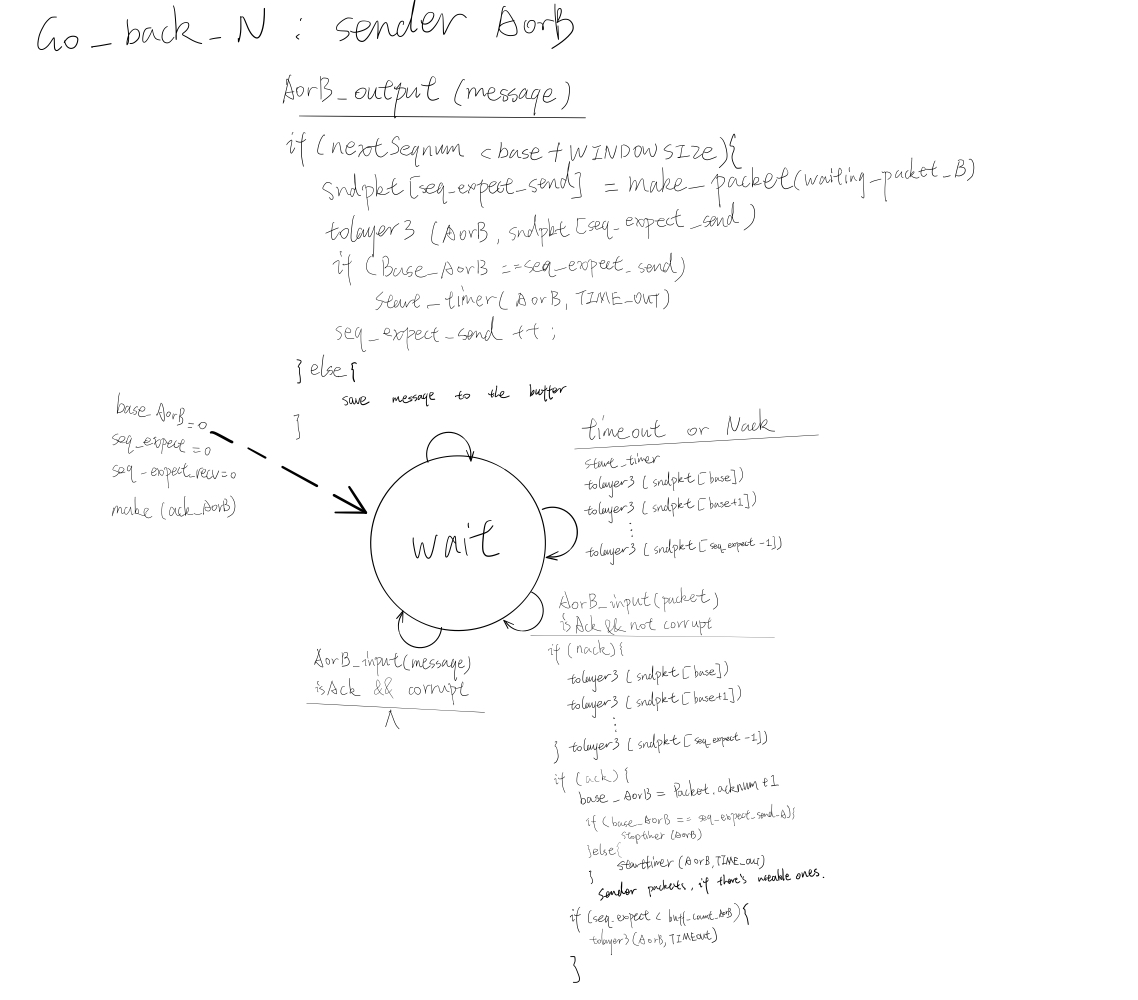 Go_back_N : sender AorB
AorB_output (message)
if (nextSeqnum < base + WINDOWSIZE){
sndpkt [seq_expect_send] = make_packet(waiting_packet_B)
tolayer3 (AorB, sndpkt [seq_expect_send)
if (Base_AorB ==seq_expect_send)
start_timer( AorB, TIME_OUT)
seq_expect_send ++ ;
} else {
save message to the buffer
}
base_AorB =0
seq_expect =0
seq_expect_recv=0
make (ack_AorB)
wait
timeout or Nack
start_timer
tolayer3 ( sndpkt [base])
tolayer3 ( sndpkt [base+1])
⋮
tolayer3 ( sndpkt [seq_expect -1])
AorB_input(message)
isAck && corrupt
Λ
AorB_input(packet)
is Ack && not corrupt
if (nack){
tolayer3 ( sndpkt [base])
tolayer3 ( sndpkt [base+1])
⋮
} tolayer3 ( sndpkt [seq_expect -1])
if (ack) {
base_AorB = Packet.acknum +1
if (base_AorB == seq_expect_send_A){
stoptimer (AorB)
}else{
starttimer (AorB, TIME_out)
}
sender packets, if there's useable ones.
if (seq_expect < buff_count_AorB) {
tolayer3 (AorB, TIMEout)
}